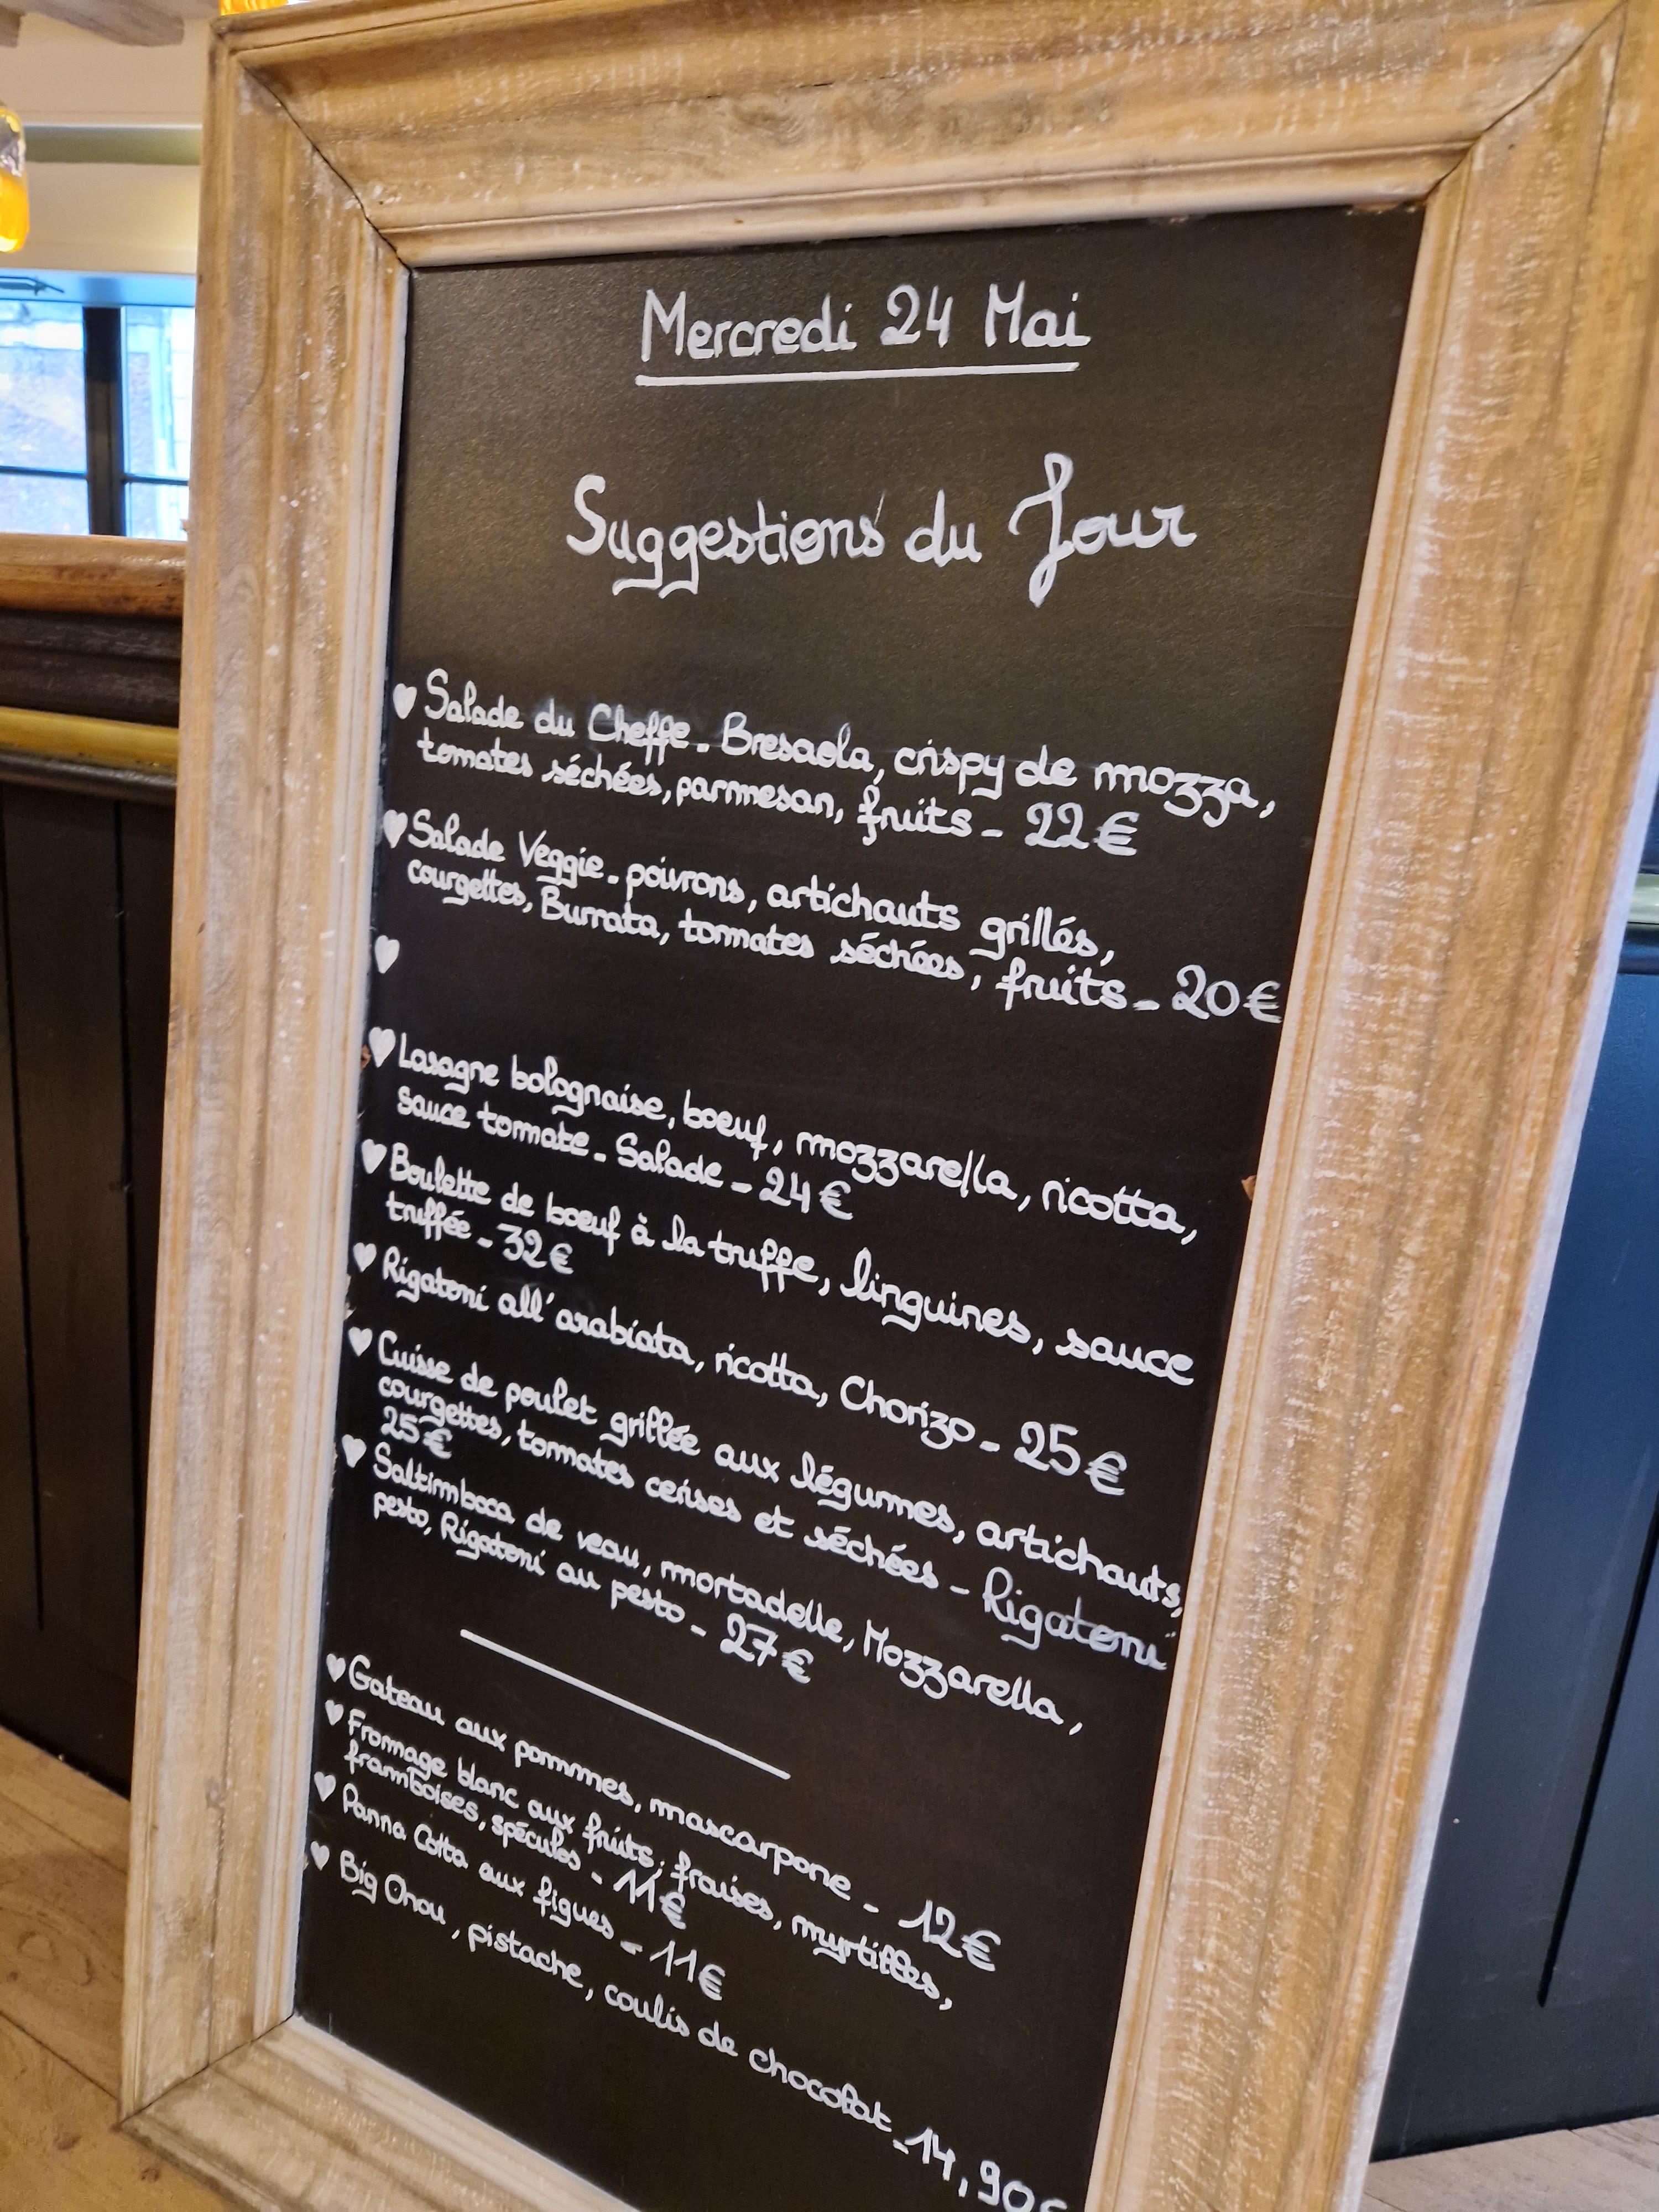 Mercredi 24 Mai
Suggestions du Jour
♥ Salade du Cheffe - Bresaola, crispy de mozza,
tomates séchées, parmesan, fruits - 22€
♥ Salade Veggie - poivrons, artichauts grillés,
courgettes, Burrata, tomates séchées, fruits - 20€
♥
♥ Lasagne bolognaise, boeuf, mozzarella, ricotta,
sauce tomate - Salade - 24€
♥ Boulette de boeuf à la truffe, linguines, sauce
truffée - 32€
♥ Rigatoni all'arabiata, ricotta, Chorizo - 25€
♥ Cuisse de poulet grillée aux légumes, artichauts,
courgettes, tomates cerises et séchées - Rigatoni
25€
♥ Saltimboca de veau, mortadelle, Mozzarella,
pesto, Rigatoni au pesto - 27€
♥ Gateau aux pommes, mascarpone - 12€
♥ Fromage blanc aux fruits; fraises, myrtilles,
framboises, spéculos - 11€
♥ Panna Cotta aux figues - 11€
♥ Big Chou, pistache, coulis de chocolat - 14,90€